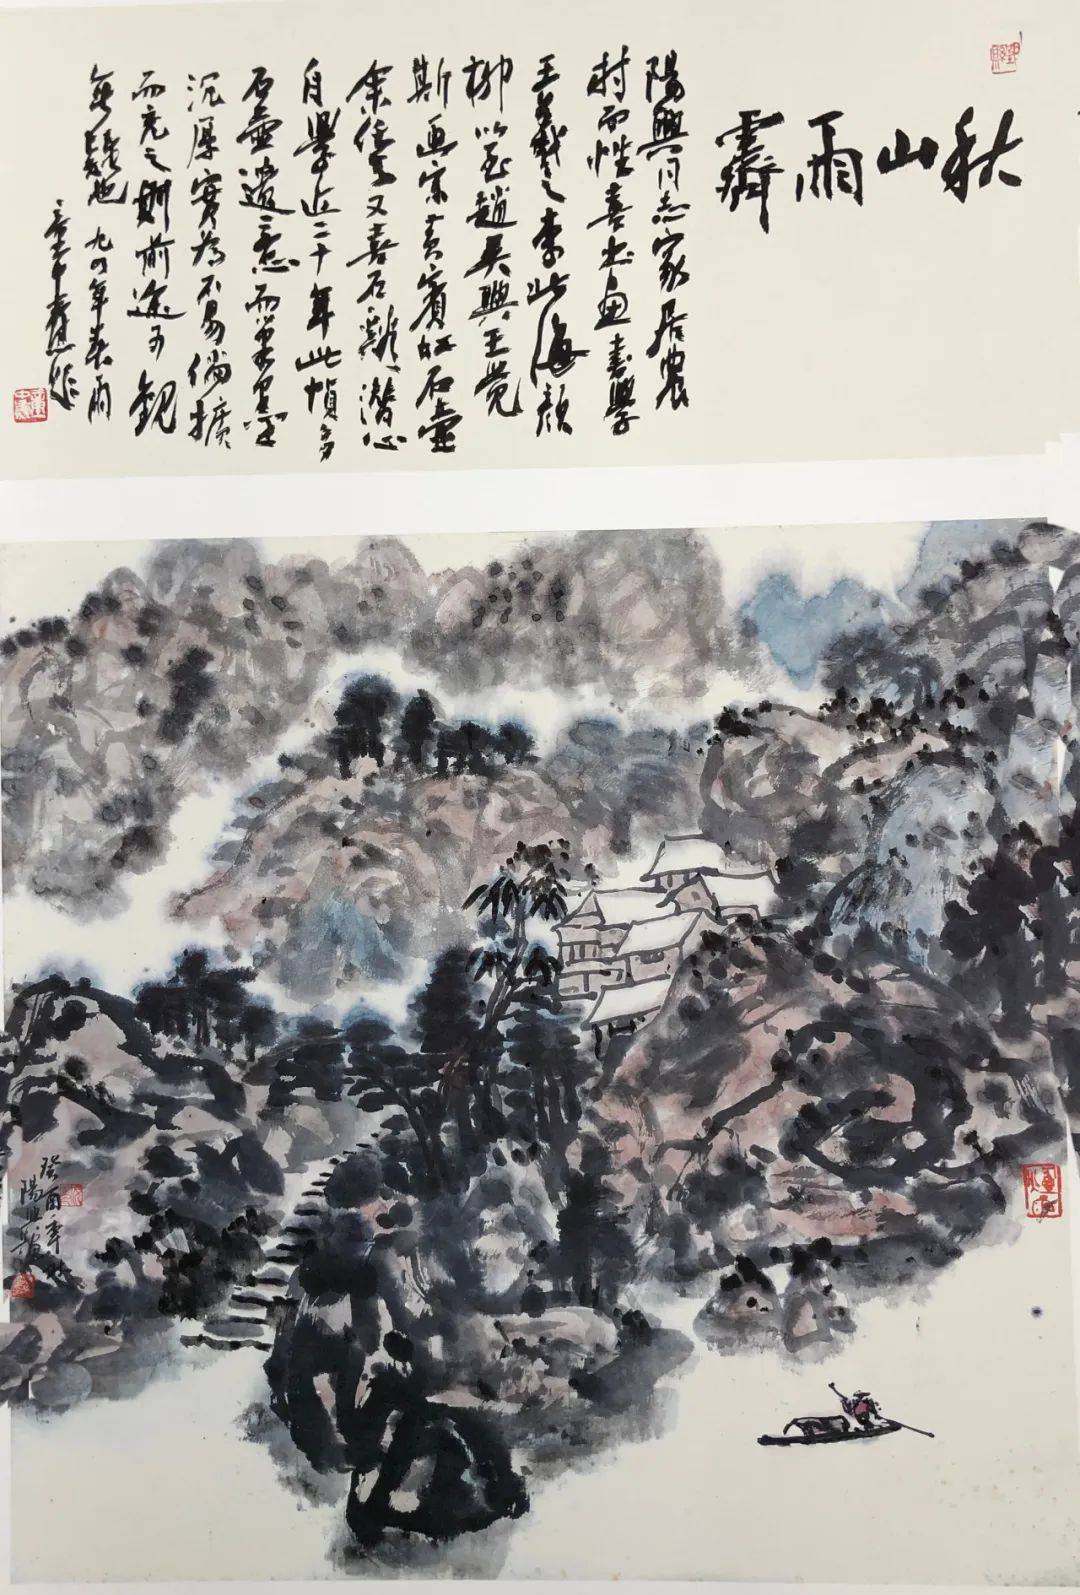 秋山雨霽
陽興同志家居農
村而性喜书画書學
王羲之李北海顏
柳以至趙吴興王覺
斯画宗黄賓虹石壺
余又喜石谿潛心
自學近二十年此幀多
石壺遺意而筆墨
沉厚實為不易倘擴
而充之則前途可觀
無疑也 九四年春雨
癸酉年秋
陽興